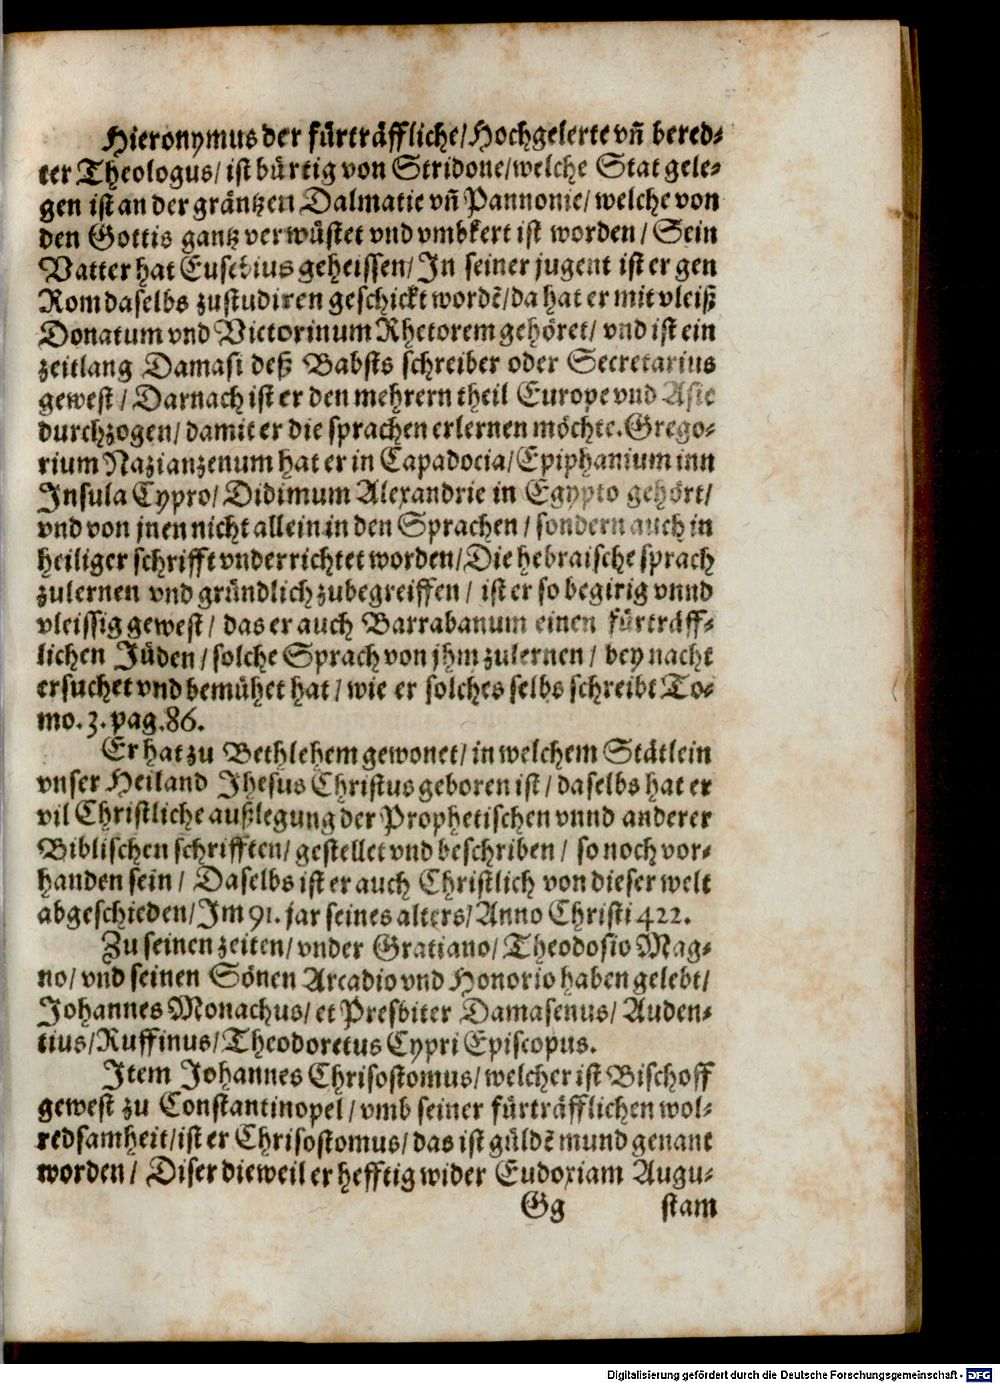 Hieronymus der fürträffliche/Hochgelerte vñ bered⸗
ter Theologus/ ist bürtig von Stridone/welche Stat gele⸗
gen ist an der gräntzen Dalmatie vñ Pannonie/ welche von
den Gottis gantz verwüstet vnd vmbkert ist worden/ Sein
Vatter hat Eusebius geheissen/ In seiner jugent ist er gen
Rom daselbs zustudiren geschickt wordē/da hat er mit vleiß
Donatum vnd Victorinum Rhetorem gehöret/ vnd ist ein
zeitlang Damasi deß Babsts schreiber oder Secretarius
gewest/ Darnach ist er den mehrern theil Europe vnd Asie
durchzogen/ damit er die sprachen erlernen möchte. Grego⸗
rium Nazianzenum hat er in Capadocia/Epiphanium inn
Insula Cypro/ Didimum Alexandrie in Egypto gehört/
vnd von jnen nicht allein in den Sprachen/ sondern auch in
heiliger schrifft vnderrichtet worden/Die hebraische sprach
zulernen vnd gründlich zubegreiffen/ ist er so begirig vnnd
vleissig gewest/ das er auch Barrabanum einen fürträff⸗
lichen Jüden/ solche Sprach von jhm zulernen/ bey nacht
ersuchet vnd bemühet hat/ wie er solches selbs schreibt To⸗
mo. 3. pag. 86.
Er hat zu Bethlehem gewonet/ in welchem Stätlein
vnser Heiland Jhesus Christus geboren ist/ daselbs hat er
vil Christliche außlegung der Prophetischen vnnd anderer
Biblischen schrifften/ gestellet vnd beschriben/ so noch vor⸗
handen sein/ Daselbs ist er auch Christlich von dieser welt
abgeschieden/Im 91. jar seines alters/ Anno Christi 422.
Zu seinen zeiten/ vnder Gratiano/ Theodosio Mag⸗
no/ vnd seinen Sönen Arcadio vnd Honorio haben gelebt/
Johannes Monachus/ et Presbiter Damasenus/ Auden⸗
tius/Ruffinus/Theodoretus Cypri Episcopus.
Item Johannes Chrisostomus/ welcher ist Bischoff
gewest zu Constantinopel/ vmb seiner fürträfflichen wol⸗
redsamheit/ist er Chrisostomus/ das ist güldē mund genant
worden/ Diser dieweil er hefftig wider Eudoxiam Augu⸗
Gg stam
Digitalisierung gefördert durch die Deutsche Forschungsgemeinschaft - DFG